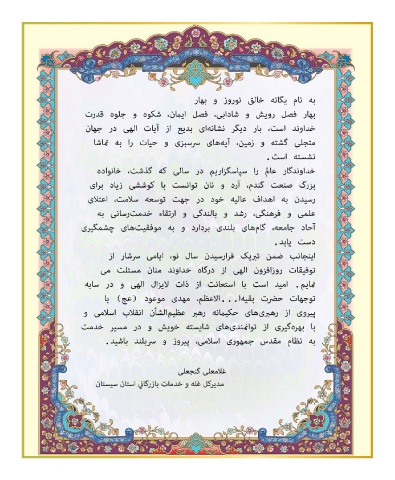 به نام یگانه خالق نوروز و بهار
بهار فصل رویش و شادابی، فصل ایمان، شکوه و جلوه قدرت
خداوند است، بار دیگر نشانه‌ای بدیع از آیات الهی در جهان
متجلی گشته و زمین، آیه‌های سرسبزی و حیات را به تماشا
نشسته است.
خداوندگار عالم را سپاسگزاریم در سالی که گذشت، خانواده
بزرگ صنعت گندم، آرد و نان توانست با کوششی زیاد برای
رسیدن به اهداف عالیه خود در جهت توسعه سلامت، اعتلای
علمی و فرهنگی، رشد و بالندگی و ارتقاء خدمت‌رسانی به
آحاد جامعه، گام‌های بلندی بردارد و به موفقیت‌های چشمگیری
دست یابد.
اینجانب ضمن تبریک فرارسیدن سال نو، ایامی سرشار از
توفیقات روزافزون الهی از درگاه خداوند منان مسئلت می
نمایم. امید است با استعانت از ذات لایزال الهی و در سایه
توجهات حضرت بقیه‌ا...الاعظم، مهدی موعود (عج) با
پیروی از رهبری‌های حکیمانه رهبر عظیم‌الشأن انقلاب اسلامی و
با بهره‌گیری از توانمندی‌های شایسته خویش و در مسیر خدمت
به نظام مقدس جمهوری اسلامی، پیروز و سربلند باشید.
غلامعلی گنجعلی
مدیرکل غله و خدمات بازرگانی استان سیستان